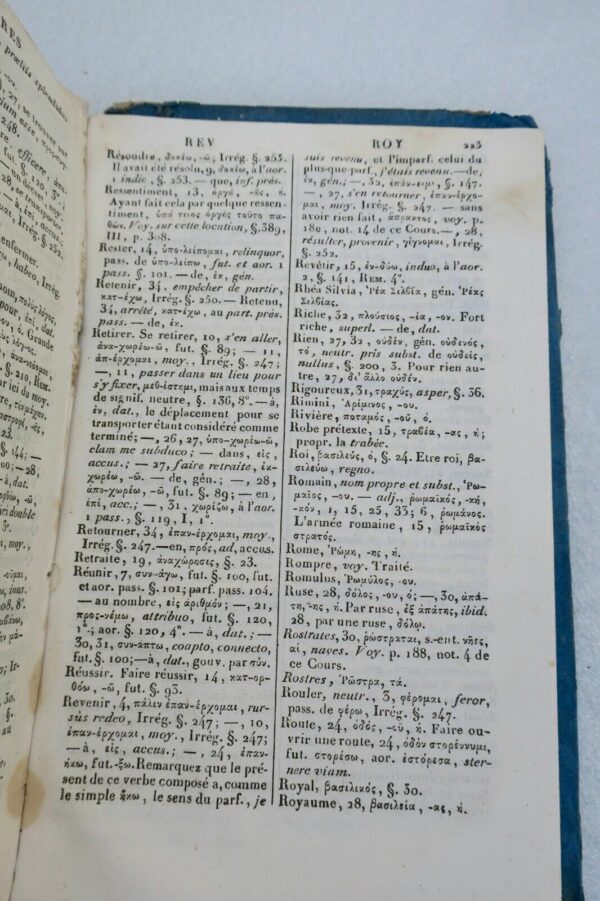 RES
REV
ROY
223
Résoudre, δοκέω, -ῶ; Irrég. §. 253.
Il avait été résolu, 9, δοκέω, à l'aor.
1 indic., §. 253. — que, inf. prés.
Ressentiment, 13, ὀργή, -ῆς, ἡ.
Ayant fait cela par quelque ressen-
timent, ὑπό τινος ὀργῆς τοῦτο πα-
θών. Voy. sur cette locution, §. 389,
III, p. 308.
Rester, 14, ὑπο-λείπομαι, relinquor,
pass. de ὑπο-λείπω, fut. et aor. 1
pass., §. 101. — de, ἐκ, gén.
Retenir, 34, empêcher de partir,
κατ-έχω, Irrég. §. 250. — Retenu,
34, arrêté, κατ-έχω, au part. prés.
pass. — de, ἐκ.
Retirer. Se retirer, 10, s'en aller,
ἀνα-χωρέω-ῶ, fut. §. 89; — 11,
ἀπ-έρχομαι, moy., Irrég. §. 247;
—, 11, passer dans un lieu pour
s'y fixer, μεθ-ίστεμι, mais aux temps
de signif. neutre, §. 136, 8°. — à,
ἐν, dat., le déplacement pour se
transporter étant considéré comme
terminé; —, 26, 27, ὑπο-χωρέω-ῶ,
clam me subduco; — dans, εἰς,
accus.; — 27, faire retraite, ἐκ-
χωρέω, -ῶ. — de, gén.; —, 28,
ἀπο-χωρέω, -ῶ, fut. §. 89; — en,
ἐπί, acc.; —, 31, χωρίζω, à l'aor.
1 pass., §. 119, I, 1°.
Retourner, 34, ἐπαν-έρχομαι, moy.,
Irrég. §. 247. — en, πρός, ad, accus.
Retraite, 19, ἀναχώρησις, §. 23.
Réunir, 7, συν-άγω, fut. §. 100, fut.
et aor. pass. §. 101; parf. pass. 104.
— au nombre, εἰς ἀριθμόν; —, 21,
προς-νέμω, attribuo, fut. §. 120,
1°.; aor. §. 120, 4°. — à, dat.; —
30, 31, συν-άπτω, coapto, connecto,
fut. §. 100; — à, dat., gouv. par σύν.
Réussir. Faire réussir, 14, κατ-ορ-
θόω, -ῶ, fut. §. 93.
Revenir, 4, πάλιν ἐπαν-έρχομαι, rur-
sùs redeo, Irrég. §. 247; —, 10,
ἐπαν-έρχομαι, moy., Irrég. §. 247;
— à, εἰς, accus.; —, 24, ἐπαν-
ήκω, fut. -ξω. Remarquez que le pré-
sent de ce verbe composé a, comme
le simple ἥκω, le sens du parf., je
suis revenu, et l'imparf. celui du
plusque-parf., j'étais revenu. — de,
ἐκ, gén.; —, 32, ἐπάν-ειμι, §. 147.
—, 27, s'en retourner, ἐπαν-έρχο-
μαι, moy. Irrég. §. 247. — sans
avoir rien fait, ἄπρακτος, voy. p.
180, not. 14 de ce Cours. —, 28,
résulter, provenir, γίγνομαι, Irrég.
§. 252.
Revêtir, 15, ἐν-δύω, induo, à l'aor.
2, §. 141, REM. 4°.
Rhéa Silvia, Ῥέα Σιλβία, gén. Ῥέας
Σιλβίας.
Riche, 32, πλούσιος, -ία, -ον. Fort
riche, superl. — de, dat.
Rien, 27, 32, οὐδέν, gén. οὐδενός,
τό, neutr. pris subst. de οὐδείς,
nullus, §. 200, 3. Pour rien au-
tre, 27, δι' ἄλλο οὐδέν.
Rigoureux, 31, τραχύς, asper, §. 36.
Rimini, Ἀρίμινος, -ου.
Rivière, ποταμός, -οῦ, ὁ.
Robe prétexte, 15, τραβέα, -ας, ἡ;
propr. la trabée.
Roi, βασιλεύς, ὁ, §. 24. Etre roi, βα-
σιλεύω, regno.
Romain, nom propre et subst., Ῥω-
μαῖος, -ου. — adj., ῥωμαϊκός, -κή,
-κόν, 1, 15, 25, 33; 6, ῥωμάνος.
L'armée romaine, 15, ῥωμαϊκός
στρατός.
Rome, Ῥώμη, -ης, ἡ.
Rompre, voy. Traité.
Romulus, Ῥωμύλος, -ου.
Ruse, 28, δόλος, -ου, ὁ; —, 30, ἀπά-
τη, -ης, ἡ. Par ruse, ἐξ ἀπάτης, ibid.
28, par une ruse, δόλῳ.
Rostrates, 30, ῥώστραται, s.-ent. νῆες,
αἱ, naves. Voy. p. 188, not. 4 de
ce Cours.
Rostres, Ῥῶστρα, τά.
Rouler, neutr., 3, φέρομαι, feror,
pass. de φέρω, Irrég. §. 247.
Route, 24, ὁδός, -οῦ, ἡ. Faire ou-
vrir une route, 24, ὁδὸν στορέννυμι,
fut. στορέσω, aor. ἐστόρεσα, ster-
nere viam.
Royal, βασιλικός, §. 30.
Royaume, 28, βασιλεία, -ας, ἡ.